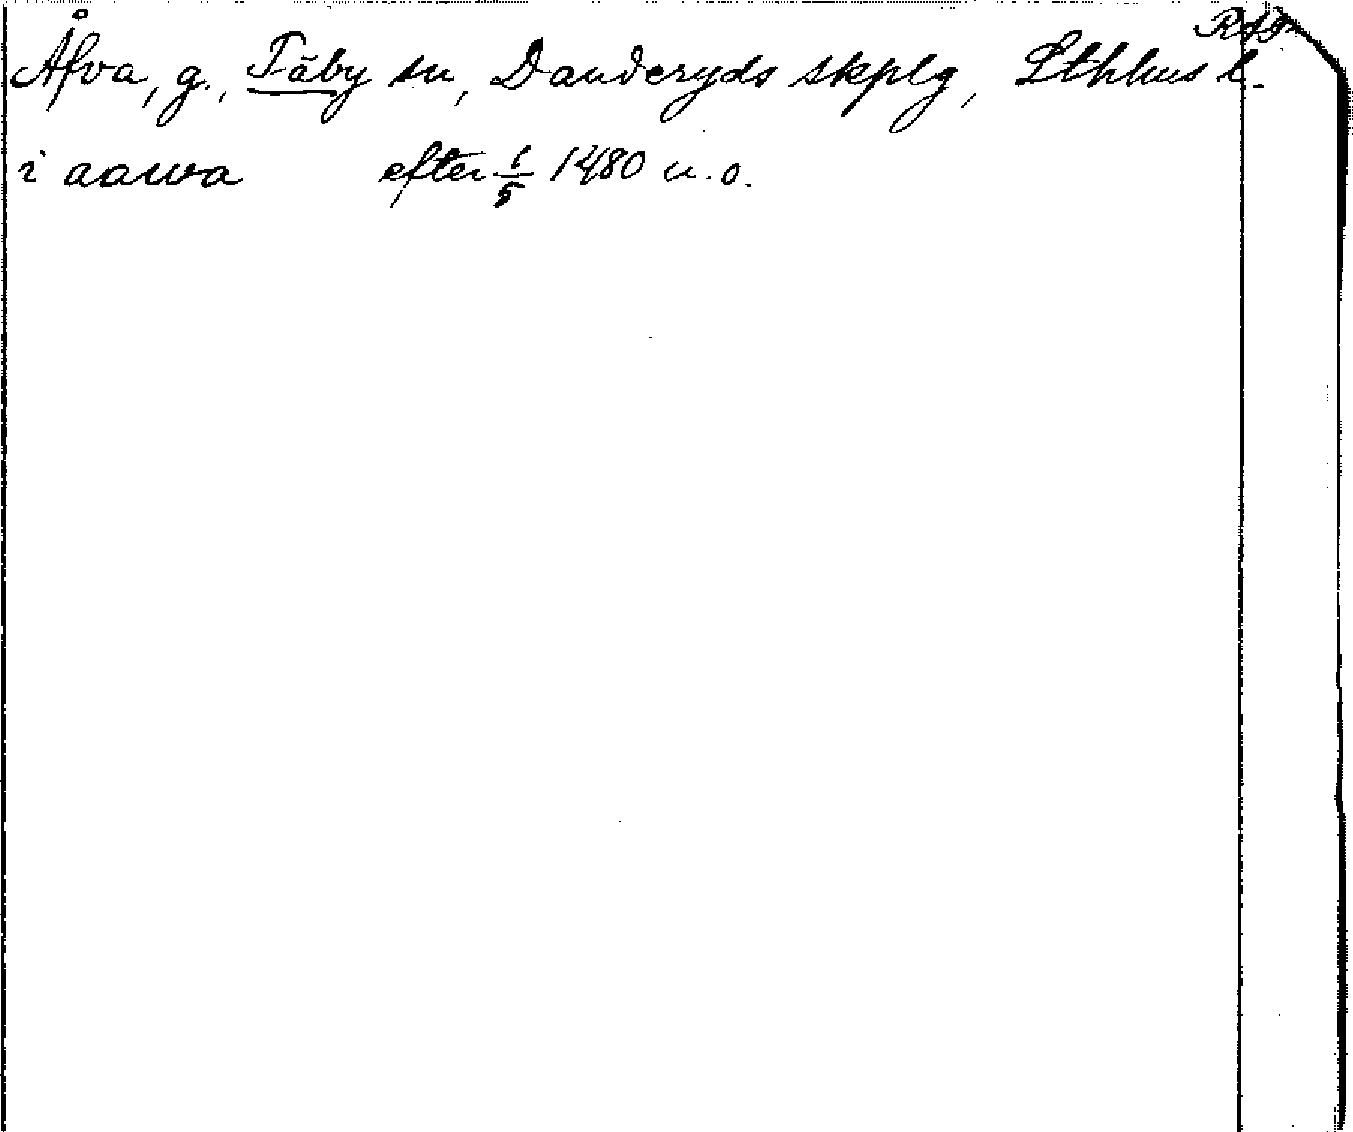 Åfva, g., Täby sn, Danderyds skplg, Sthlms l.
i aawa efter 1/5 1480 u. o.